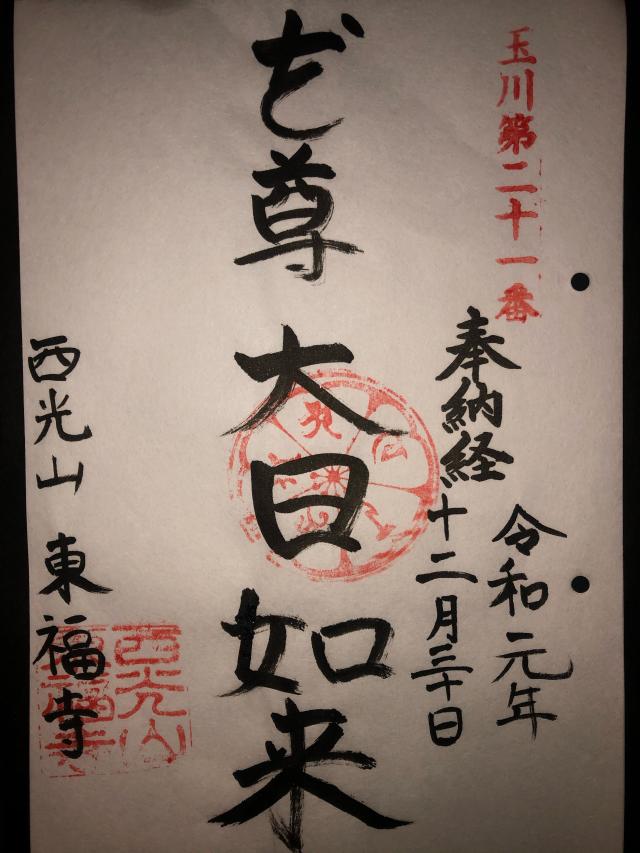 玉川第二十一番
令和元年
奉納経十二月三十日
本尊 大日如来
西光山 東福寺
西光山
東福寺